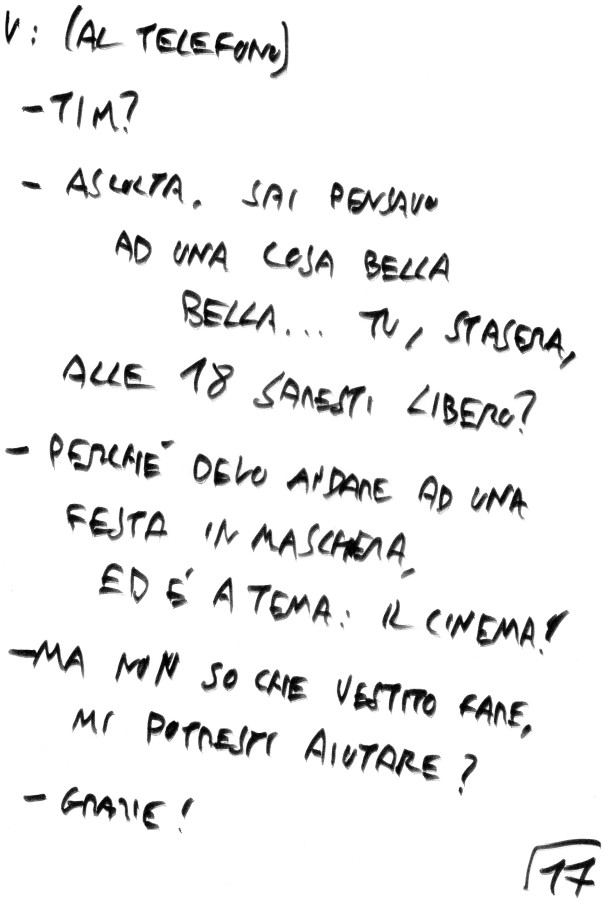 V: (AL TELEFONO)
- TIM?
- ASCOLTA. SAI PENSAVO
AD UNA COSA BELLA
BELLA... TU, STASERA,
ALLE 18 SARESTI LIBERO?
- PERCHÉ DEVO ANDARE AD UNA
FESTA IN MASCHERA,
ED É A TEMA: IL CINEMA!
- MA NON SO CHE VESTITO FARE,
MI POTRESTI AIUTARE?
- GRAZIE!
17